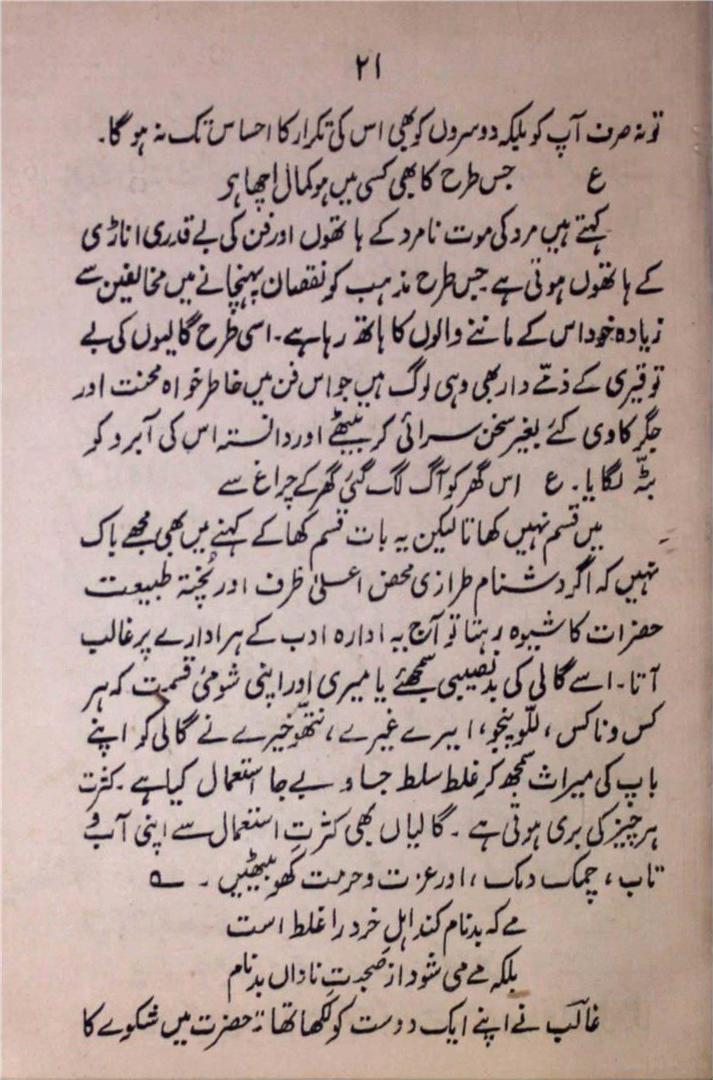 ۲۱
تو نہ صرف آپ کو بلکہ دوسروں کو بھی اس کی تکرار کا احساس تک نہ ہوگا۔
ع جس طرح کا بھی کسی میں ہو کمال اچھا ہے
کہتے ہیں مرد کی موت نامرد کے ہاتھوں اور فن کی بے قدری اناڑی
کے ہاتھوں ہوتی ہے جس طرح مذہب کو نقصان پہنچانے میں مخالفین سے
زیادہ خود اس کے ماننے والوں کا ہاتھ رہا ہے۔ اسی طرح گالیوں کی بے
توقیری کے ذمّے دار بھی وہی لوگ ہیں جو اس فن میں خاطر خواہ محنت اور
جگر کاوی کئے بغیر سخن سرائی کر بیٹھے اور دانستہ اس کی آبرو کو
بٹّہ لگایا۔ ع اس گھر کو آگ لگ گئی گھر کے چراغ سے
میں قسم نہیں کھاتا لیکن یہ بات قسم کھا کے کہنے میں بھی مجھے باک
نہیں کہ اگر دشنام طرازی محض اعلیٰ ظرف اور پُختہ طبیعت
حضرات کا شیوہ رہتا تو آج یہ ادارہ ادب کے ہر ادارے پر غالب
آتا۔ اسے گالی کی بدنصیبی سمجھئے یا میری اور اپنی شومیٔ قسمت کہ ہر
کس و ناکس، للّو پنجو، ایرے غیرے، نتھّو خیرے نے گالی کو اپنے
باپ کی میراث سمجھ کر غلط سلط جا و بے جا استعمال کیا ہے۔ کثرت
ہر چیز کی بری ہوتی ہے۔ گالیاں بھی کثرتِ استعمال سے اپنی آب و
تاب، چمک دمک، اور عزت و حرمت کھو بیٹھیں۔ ؎
مے کہ بدنام کند اہلِ خرد را غلط است
بلکہ مے می شود از صحبتِ ناداں بدنام
غالب نے اپنے ایک دوست کو لکھا تھا حضرت میں شکوے کا